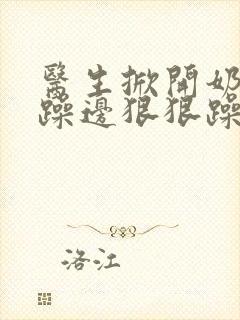 醫生掀開奶
躁邊狠狠躁
洛江